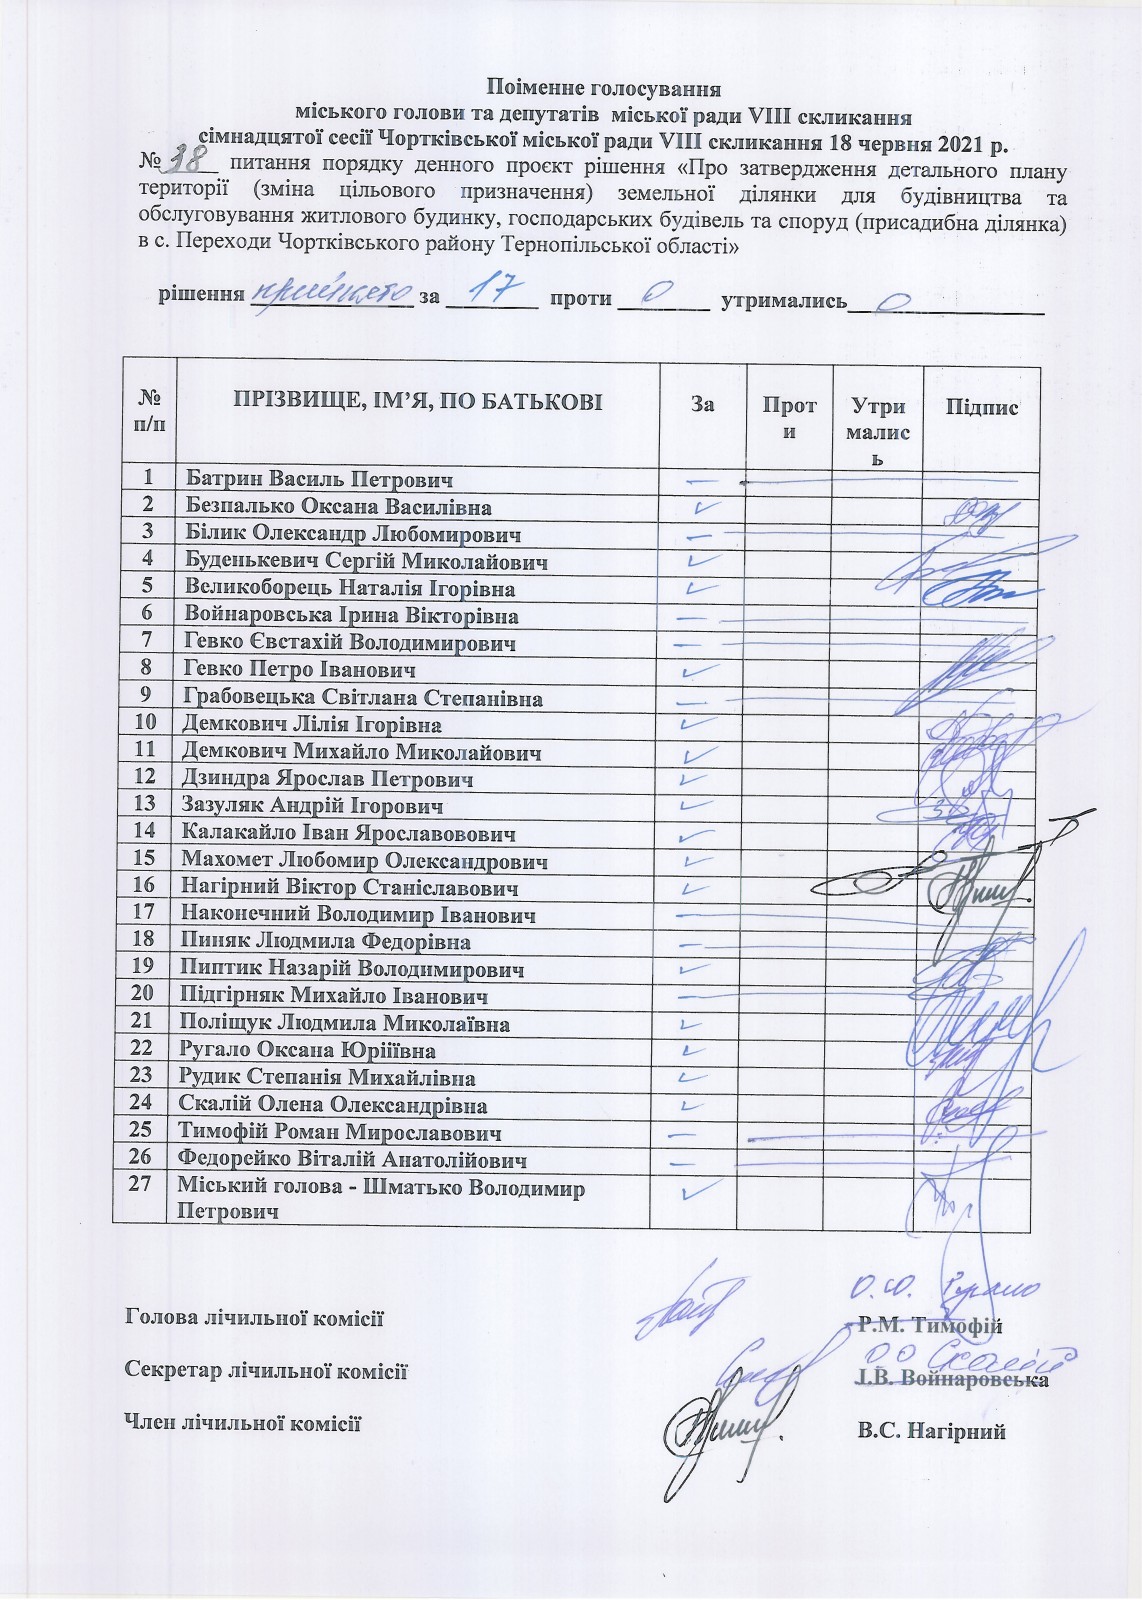 Поіменне голосування
міського голови та депутатів міської ради VIII скликання
сімнадцятої сесії Чортківської міської ради VIII скликання 18 червня 2021 р.
№ 38 питання порядку денного проєкт рішення «Про затвердження детального плану
території (зміна цільового призначення) земельної ділянки для будівництва та
обслуговування житлового будинку, господарських будівель та споруд (присадибна ділянка)
в с. Переходи Чортківського району Тернопільської області»
рішення прийнято за 17 проти 0 утримались 0
№ п/п ПРІЗВИЩЕ, ІМ’Я, ПО БАТЬКОВІ За Проти Утрималис ь Підпис
1 Батрин Василь Петрович —
2 Безпалько Оксана Василівна ✓
3 Білик Олександр Любомирович —
4 Буденькевич Сергій Миколайович ✓
5 Великоборець Наталія Ігорівна ✓
6 Войнаровська Ірина Вікторівна —
7 Гевко Євстахій Володимирович —
8 Гевко Петро Іванович ✓
9 Грабовецька Світлана Степанівна —
10 Демкович Лілія Ігорівна ✓
11 Демкович Михайло Миколайович ✓
12 Дзиндра Ярослав Петрович ✓
13 Зазуляк Андрій Ігорович ✓
14 Калакайло Іван Ярославовович ✓
15 Махомет Любомир Олександрович ✓
16 Нагірний Віктор Станіславович ✓
17 Наконечний Володимир Іванович —
18 Пиняк Людмила Федорівна —
19 Пиптик Назарій Володимирович ✓
20 Підгірняк Михайло Іванович —
21 Поліщук Людмила Миколаївна ✓
22 Ругало Оксана Юріїівна ✓
23 Рудик Степанія Михайлівна ✓
24 Скалій Олена Олександрівна ✓
25 Тимофій Роман Мирославович —
26 Федорейко Віталій Анатолійович —
27 Міський голова - Шматько Володимир ✓
Петрович
О.Ю. Ругало
Голова лічильної комісії Р.М. Тимофій
О О Скалій
Секретар лічильної комісії І.В. Войнаровська
Член лічильної комісії В.С. Нагірний